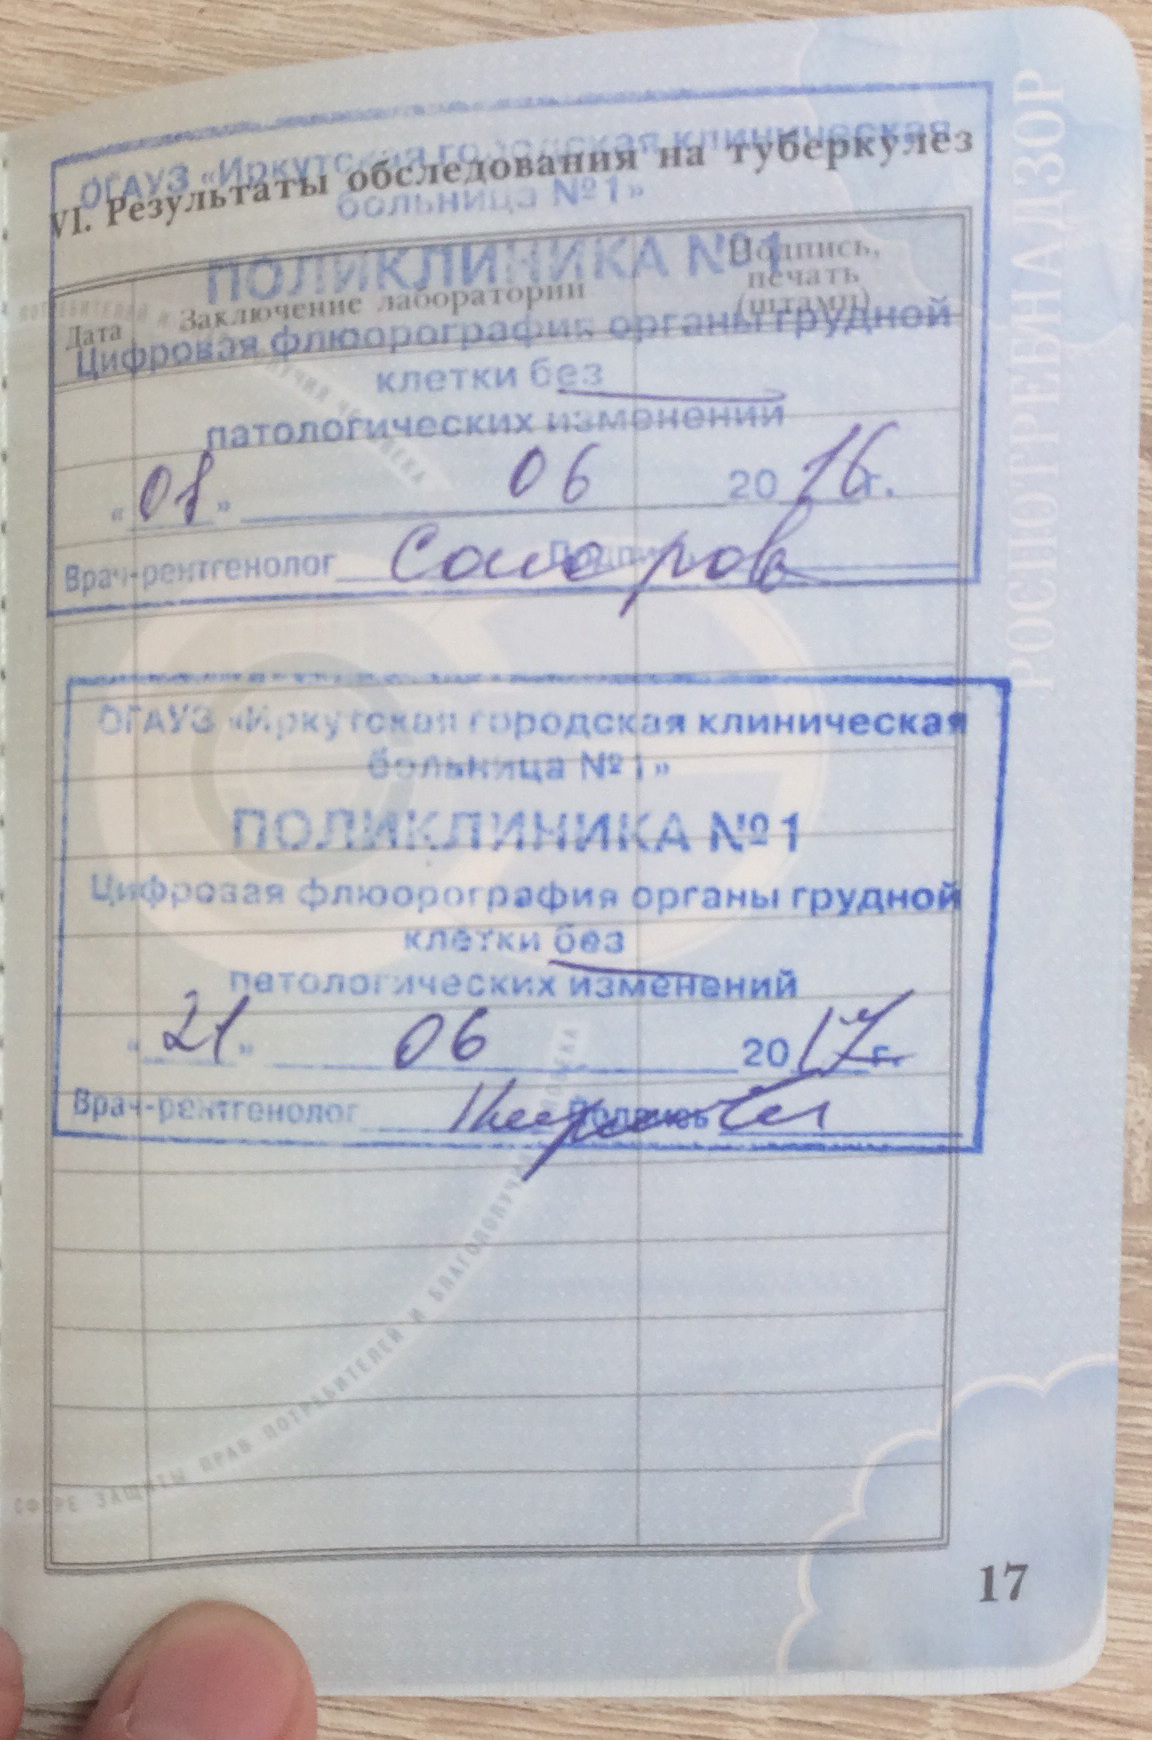 VI. Результаты обследования на туберкулез
ОГАУЗ «Иркутская городская клиническая
больница №1»
ПОЛИКЛИНИКА №1
Дата
Заключение лаборатории
Подпись,
печать
(штамп)
Цифровая флюорография органы грудной
клетки без
патологических изменений
"01" 06 2016г.
Врач-рентгенолог Подпись
ОГАУЗ «Иркутская городская клиническая
больница №1»
ПОЛИКЛИНИКА №1
Цифровая флюорография органы грудной
клетки без
патологических изменений
"21" 06 2017г.
Врач-рентгенолог Подпись
СФЕРЕ ЗАЩИТЫ ПРАВ ПОТРЕБИТЕЛЕЙ И БЛАГОПОЛУЧИЯ ЧЕЛОВЕКА
РОСПОТРЕБНАДЗОР
17